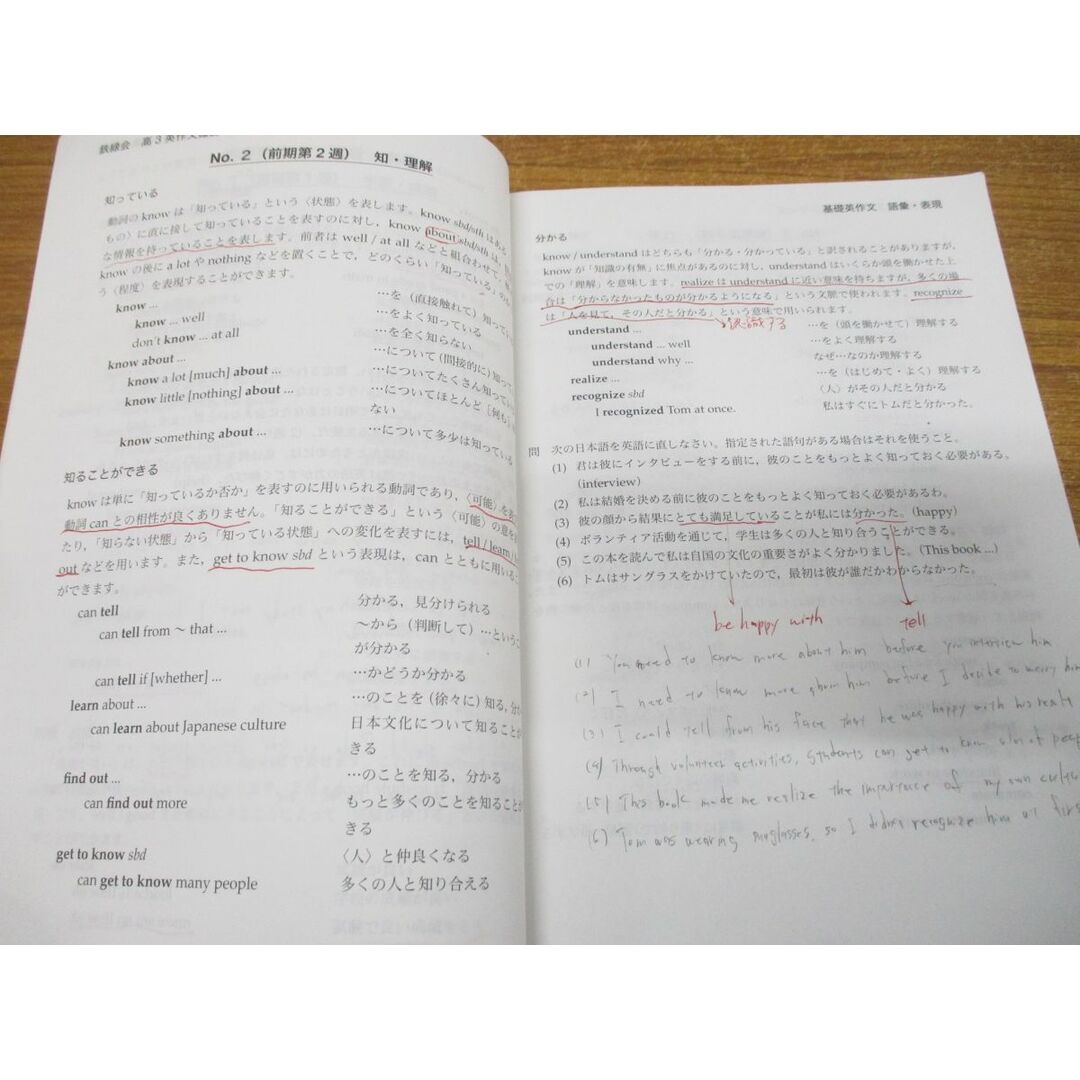 鉄緑会 高3英作文
No. 2（前期第2週） 知・理解
知っている
動詞の know は「知っている」という〈状態〉を表します。know sbd/sth は
もの〉に直に接して知っていることを表すのに対し，know about sbd/sth は，
な情報を持っていることを表します。前者は well / at all などと組合わせて，
know の後に a lot や nothing などを置くことで，どのくらい「知っている」の
う〈程度〉を表現することができます。
know ... …を（直接触れて）知って
know ... well …をよく知っている
don't know ... at all …を全く知らない
know about ... …について(間接的に)知っ
know a lot [much] about ... …についてたくさん知ってい
know little [nothing] about ... …についてほとんど［何も］
ない
know something about ... …について多少は知っている
知ることができる
know は単に「知っているか否か」を表すのに用いられる動詞であり，〈可能〉を
動詞 can との相性が良くありません。「知ることができる」という〈可能〉の意を
たり，「知らない状態」から「知っている状態」への変化を表すには，tell / learn /
out などを用います。また，get to know sbd という表現は，can とともに用いる
ができます。
can tell 分かる，見分けられる
can tell from ～ that ... ～から（判断して）…という
が分かる
can tell if [whether] ... …かどうか分かる
learn about ... …のことを（徐々に）知る，分か
can learn about Japanese culture 日本文化について知ることが
きる
find out ... …のことを知る，分かる
can find out more もっと多くのことを知ることが
きる
get to know sbd 〈人〉と仲良くなる
can get to know many people 多くの人と知り合える
基礎英作文 語彙・表現
分かる
know / understand はどちらも「分かる・分かっている」と訳されることがありますが，
know が「知識の有無」に焦点があるのに対し，understand はいくらか頭を働かせた上
での「理解」を意味します。realize は understand に近い意味を持ちますが，多くの場
合は「分からなかったものが分かるようになる」という文脈で使われます。recognize
は「人を見て，その人だと分かる」という意味で用いられます。
認識する
understand ... …を（頭を働かせて）理解する
understand ... well …をよく理解する
understand why ... なぜ…なのか理解する
realize ... …を（はじめて・よく）理解する
recognize sbd 〈人〉がその人だと分かる
I recognized Tom at once. 私はすぐにトムだと分かった。
問 次の日本語を英語に直しなさい。指定された語句がある場合はそれを使うこと。
(1) 君は彼にインタビューをする前に，彼のことをもっとよく知っておく必要がある。
(interview)
(2) 私は結婚を決める前に彼のことをもっとよく知っておく必要があるわ。
(3) 彼の顔から結果にとても満足していることが私には分かった。(happy)
(4) ボランティア活動を通じて，学生は多くの人と知り合うことができる。
(5) この本を読んで私は自国の文化の重要さがよく分かりました。(This book ...)
(6) トムはサングラスをかけていたので，最初は彼が誰だかわからなかった。
be happy with tell
(1) You need to know more about him before you interview him
(2) I need to know more about him before I decide to marry him
(3) I could tell from his face that he was happy with his
(4) Through volunteer activities, students can get to know a lot of
(5) This book made me realize the importance of my own
(6) Tom was wearing sunglasses, so I didn't recognize him at